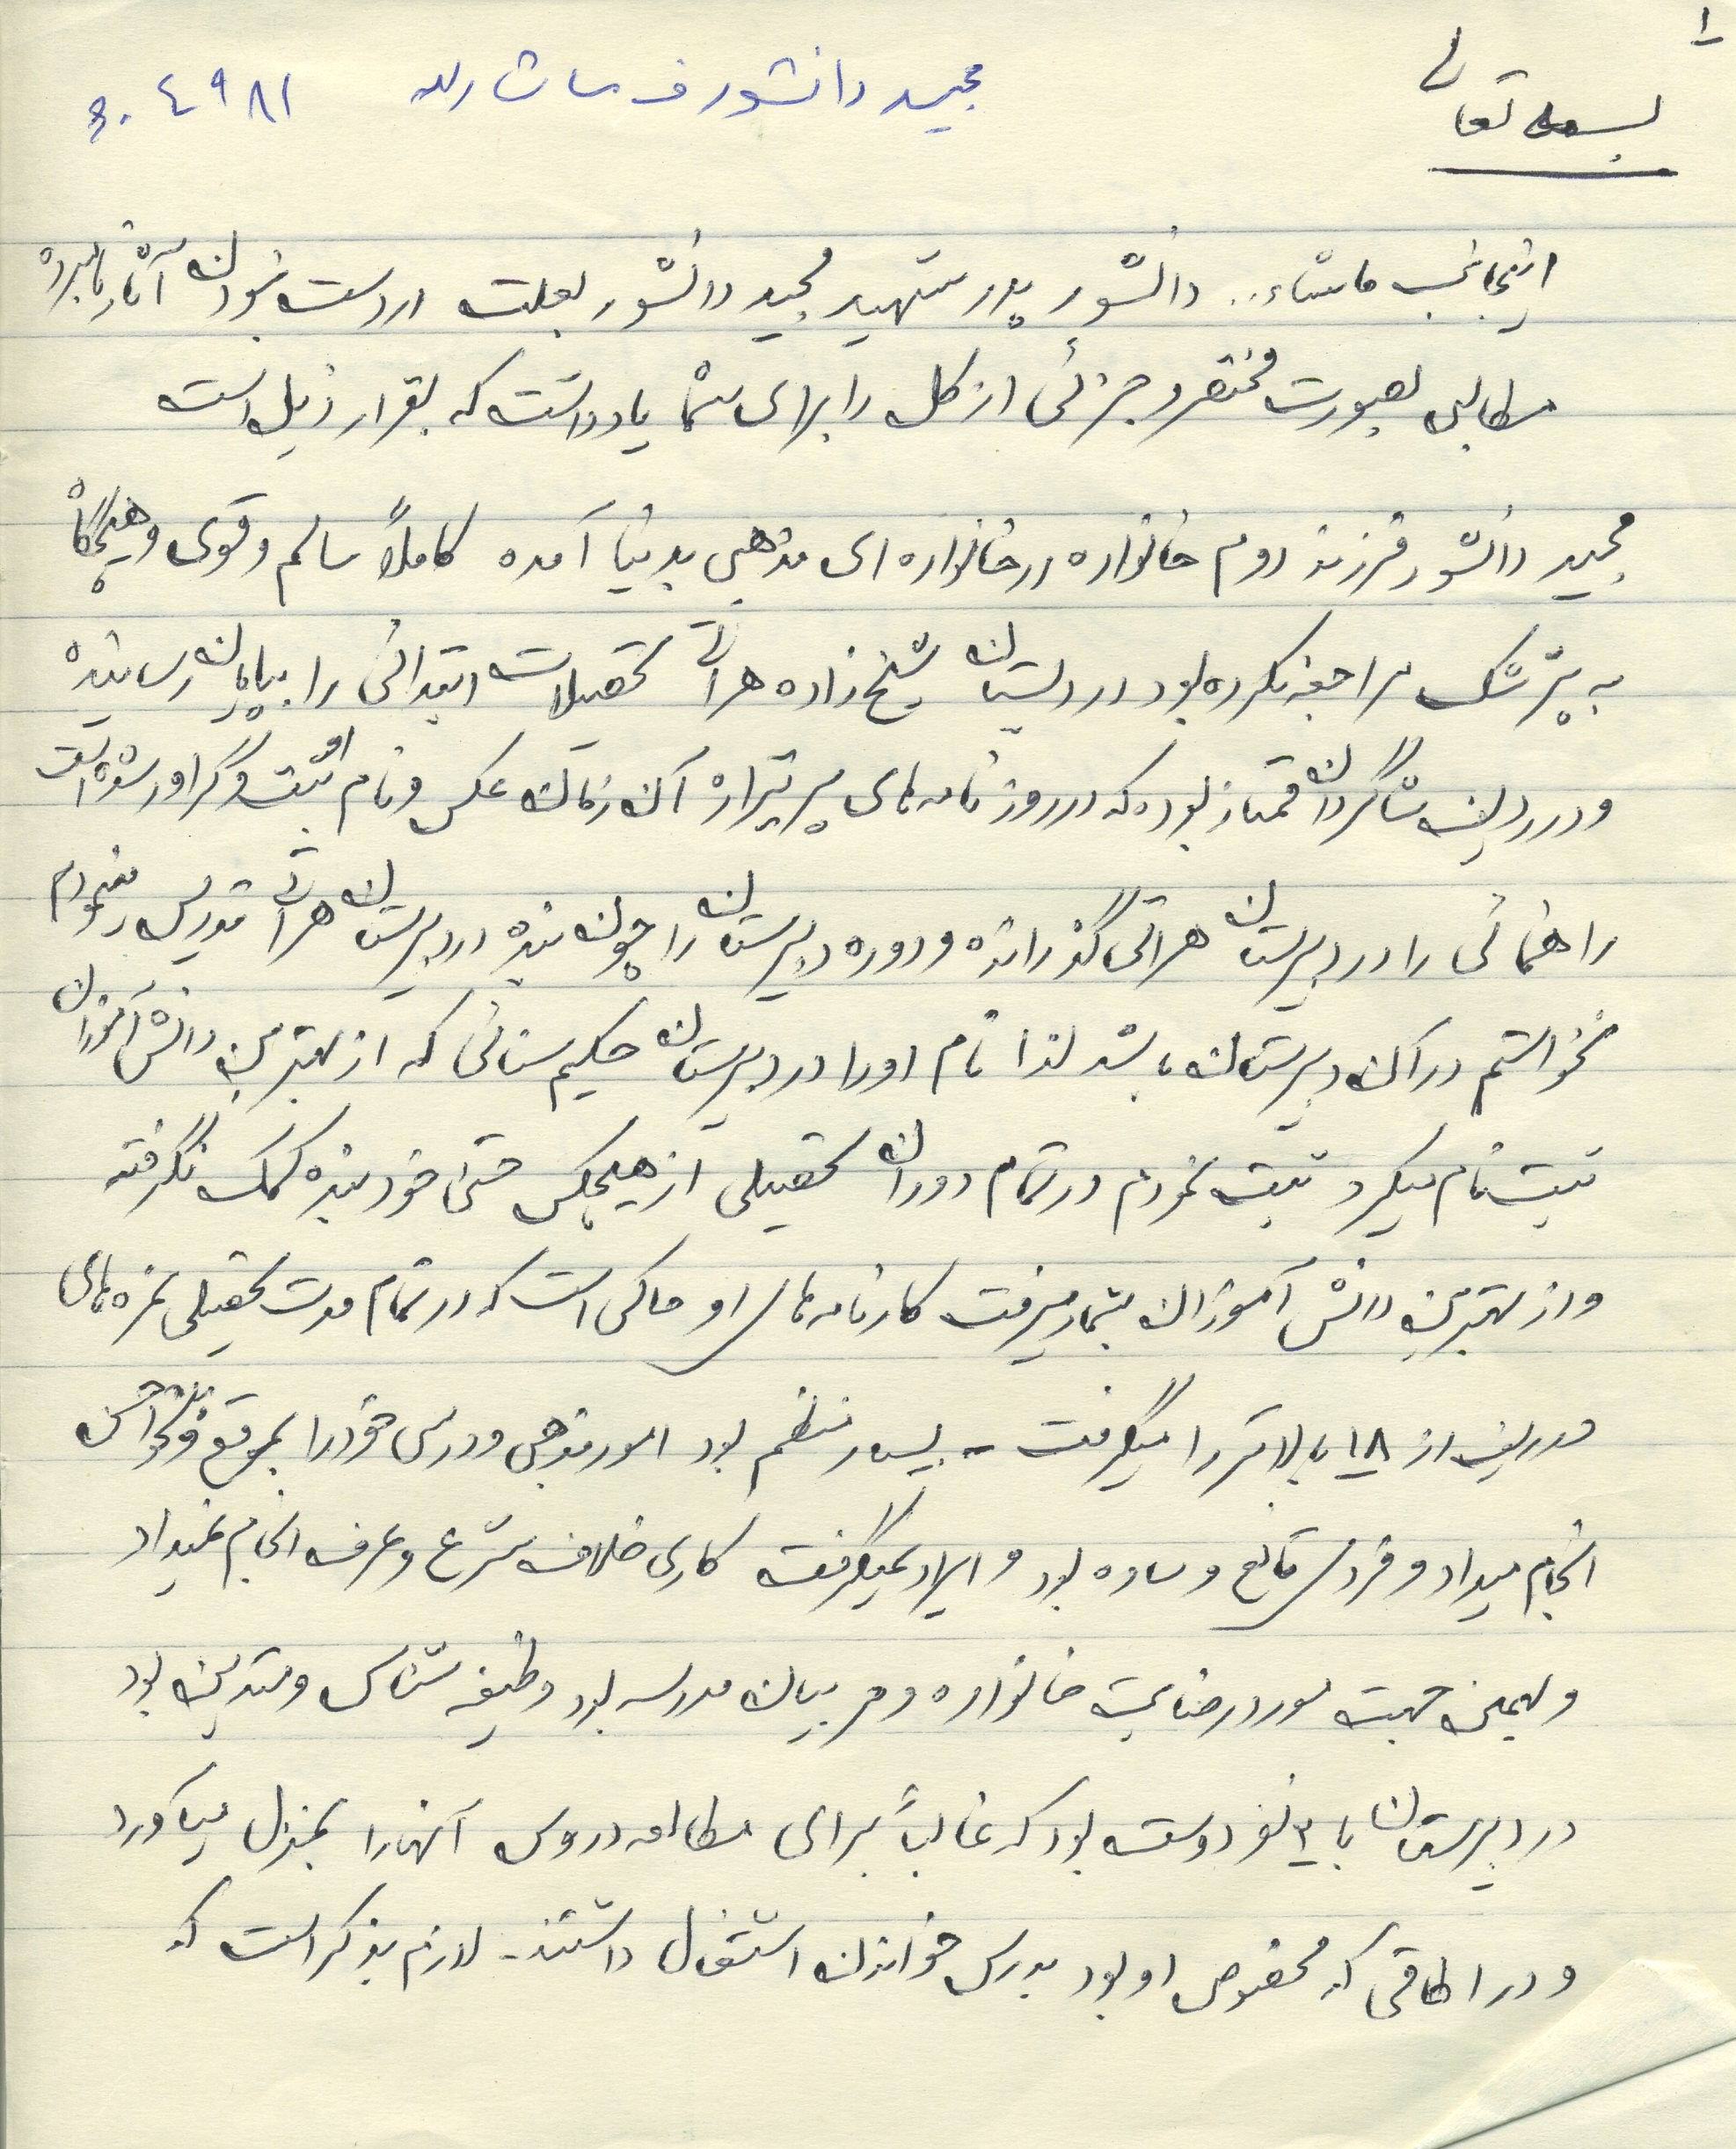 ۱
بسمه تعالی
مجید دانشور ف ماشاءالله ۳۰۴۹۸۱
اینجانب ماشاء.. دانشور پدر شهید مجید دانشور بعلت در دست نبودن آثار نامبرده
مطالبی بصورت مختصر و جزئی از کل را برای شما یادداشت که بقرار ذیل است
مجید دانشور فرزند دوم خانواده در خانواده ای مذهبی بدنیا آمده کاملاً سالم و قوی و هیچگاه
به پزشک مراجعه نکرده بود در دبستان شیخ زاده هراتی تحصیلات ابتدائی را بپایان رسانیده
و در ردیف شاگردان ممتاز بوده که در روزنامه های پر تیراژ آن زمان عکس و نام او ثبت و گراور شده است
راهنمائی را در دبیرستان هراتی گذرانده و دوره دبیرستان را چون بنده در دبیرستان هراتی تدریس مینمودم
نخواستم در آن دبیرستان باشد لذا نام او را در دبیرستان حکیم سنائی که از بهترین دانش آموزان
ثبت نام میکرد ثبت نمودم در تمام دوران تحصیلی از هیچکس حتی خود بنده کمک نگرفته
و از بهترین دانش آموزان بشمار میرفت کارنامه های او حاکی است که در تمام مدت تحصیلی نمره های
دروس از ۱۸ ببالاتر را میگرفت - بسیار منظم بود امور مذهبی و درسی خود را بموقع و بنحو احسن
انجام میداد و فردی قانع و ساده بود و ایراد نمیگرفت کاری خلاف شرع و عرف انجام نمیداد
و بهمین جهت مورد رضایت خانواده و مربیان مدرسه بود وظیفه شناس و متدین بود
در دبیرستان با ۳ نفر دوست بود که غالباً برای مطالعه دروس آنها را بمنزل میآورد
و در اطاقی که مخصوص او بود بدرس خواندن اشتغال داشتند - لازم بذکر است که